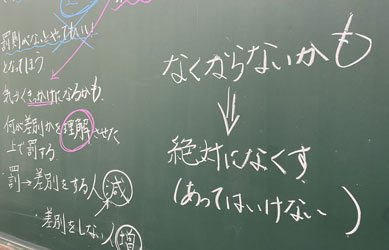 罰則がないとやってもいい!
となってしまう
気づくきっかけになるかも
何が差別かを理解させた
上で罰する
罰→差別をする人減
・差別をしない人増
なくならないかも
⇓
絶対になくす
(あってはいけない)